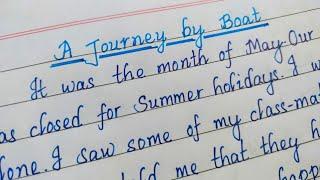 A Journey by Boat
It was the month of May. Our
as closed for Summer holidays. I w
lone. I saw some of my class-ma
me that they h
happ